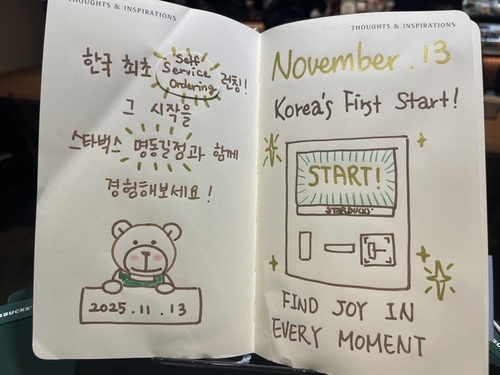 THOUGHTS & INSPIRATIONS
한국 최초 Self Service Ordering 런칭!
그 시작을
스타벅스 명동길점과 함께
경험해보세요!
2025.11.13
THOUGHTS & INSPIRATIONS
November.13
Korea's First Start!
START!
STARBUCKS
FIND JOY IN
EVERY MOMENT